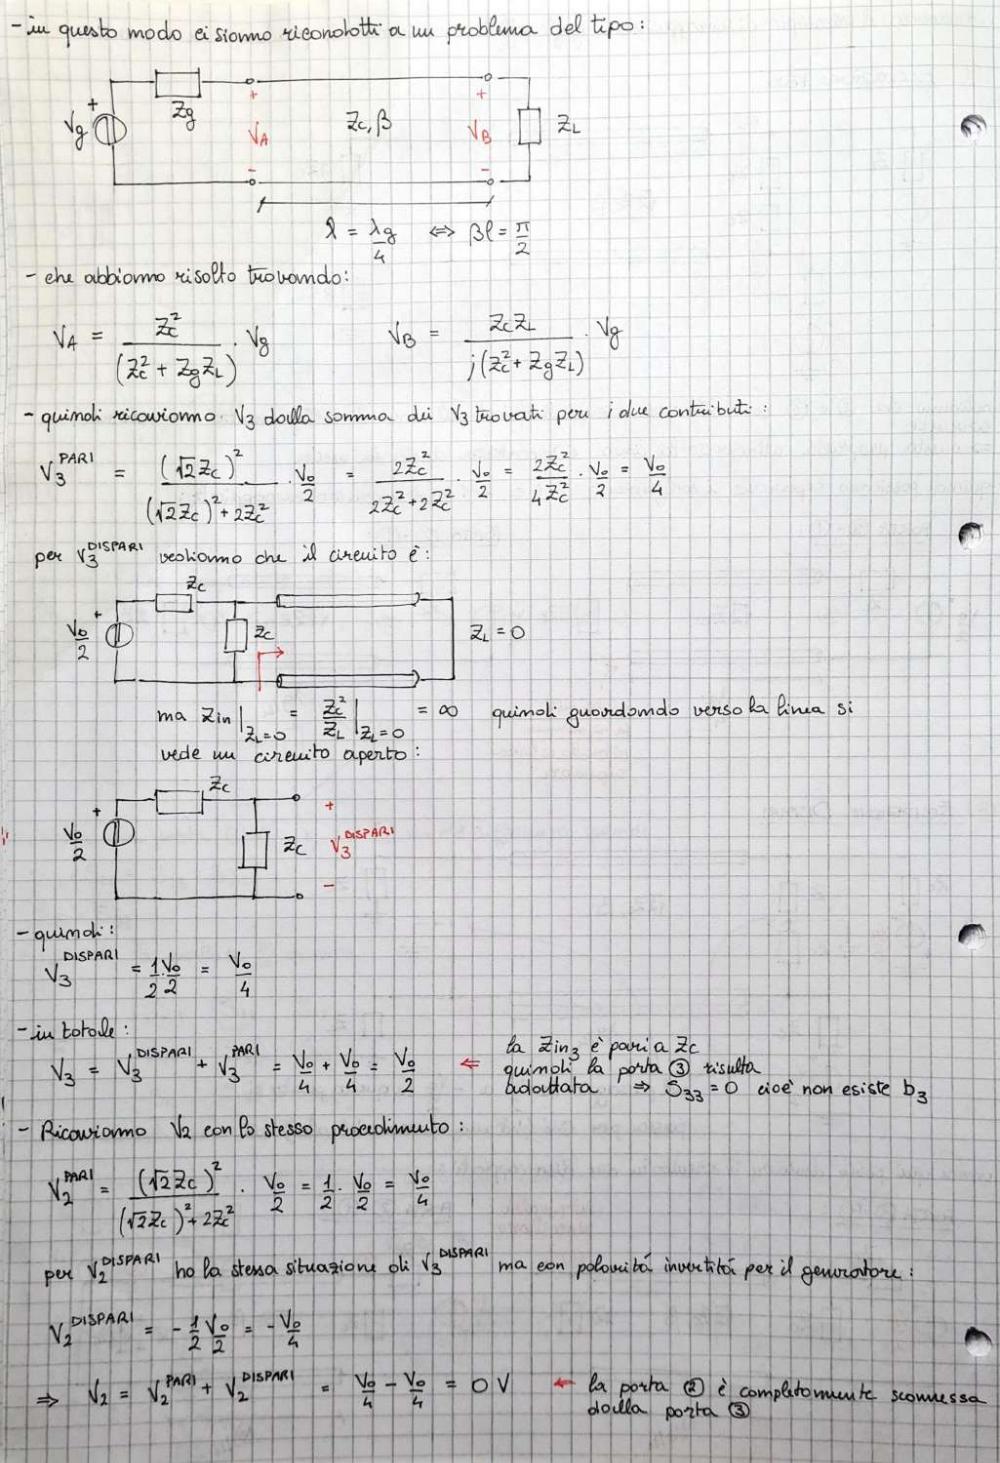 - in questo modo ci siamo ricondotti a un problema del tipo:
Vg + Zg + VA - Zc, β + VB - ZL
l = λg/4 ⇔ βl = π/2
- che abbiamo risolto trovando:
VA = Zc²/(Zc² + ZgZL) · Vg VB = ZcZL/j(Zc² + ZgZL) · Vg
- quindi ricaviamo V3 dalla somma dei V3 trovati per i due contributi:
V3^PARI = (√2Zc)²/((√2Zc)² + 2Zc²) · V0/2 = 2Zc²/(2Zc² + 2Zc²) · V0/2 = 2Zc²/4Zc² · V0/2 = V0/4
per V3^DISPARI vediamo che il circuito è:
Zc
V0/2 + Zc ZL = 0
ma Zin|ZL=0 = Zc²/ZL|ZL=0 = ∞ quindi guardando verso la linea si
vede un circuito aperto:
Zc
V0/2 + Zc + V3^DISPARI -
- quindi:
V3^DISPARI = 1/2 · V0/2 = V0/4
- in totale:
V3 = V3^DISPARI + V3^PARI = V0/4 + V0/4 = V0/2 ⇐ la Zin3 è pari a Zc
quindi la porta ③ risulta
adattata ⇒ S33 = 0 cioè non esiste b3
- Ricaviamo V2 con lo stesso procedimento:
V2^PARI = (√2Zc)²/((√2Zc)² + 2Zc²) · V0/2 = 1/2 · V0/2 = V0/4
per V2^DISPARI ho la stessa situazione di V3^DISPARI ma con polarità invertità per il generatore:
V2^DISPARI = - 1/2 V0/2 = - V0/4
⇒ V2 = V2^PARI + V2^DISPARI = V0/4 - V0/4 = 0 V ← la porta ② è completamente sconnessa
dalla porta ③